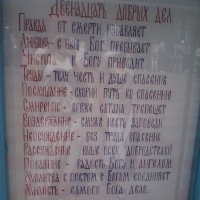 Двенадцать добрых дел
Правда от смерти избавляет
Любовь - с ним Бог пребывает
Чистота к Богу приводит
Труды - телу честь и душе спасение
Послушание - скорый путь ко спасению
Смирение - его же сатана трепещет
Воздержание - сюже несть заповеди
Неосуждение - без труда спасение
Рассуждение - выше всех добродетелей
Покаяние - радость Богу и ангелом
Молитва с постом с Богом соединяет
Милость - самого Бога дело.